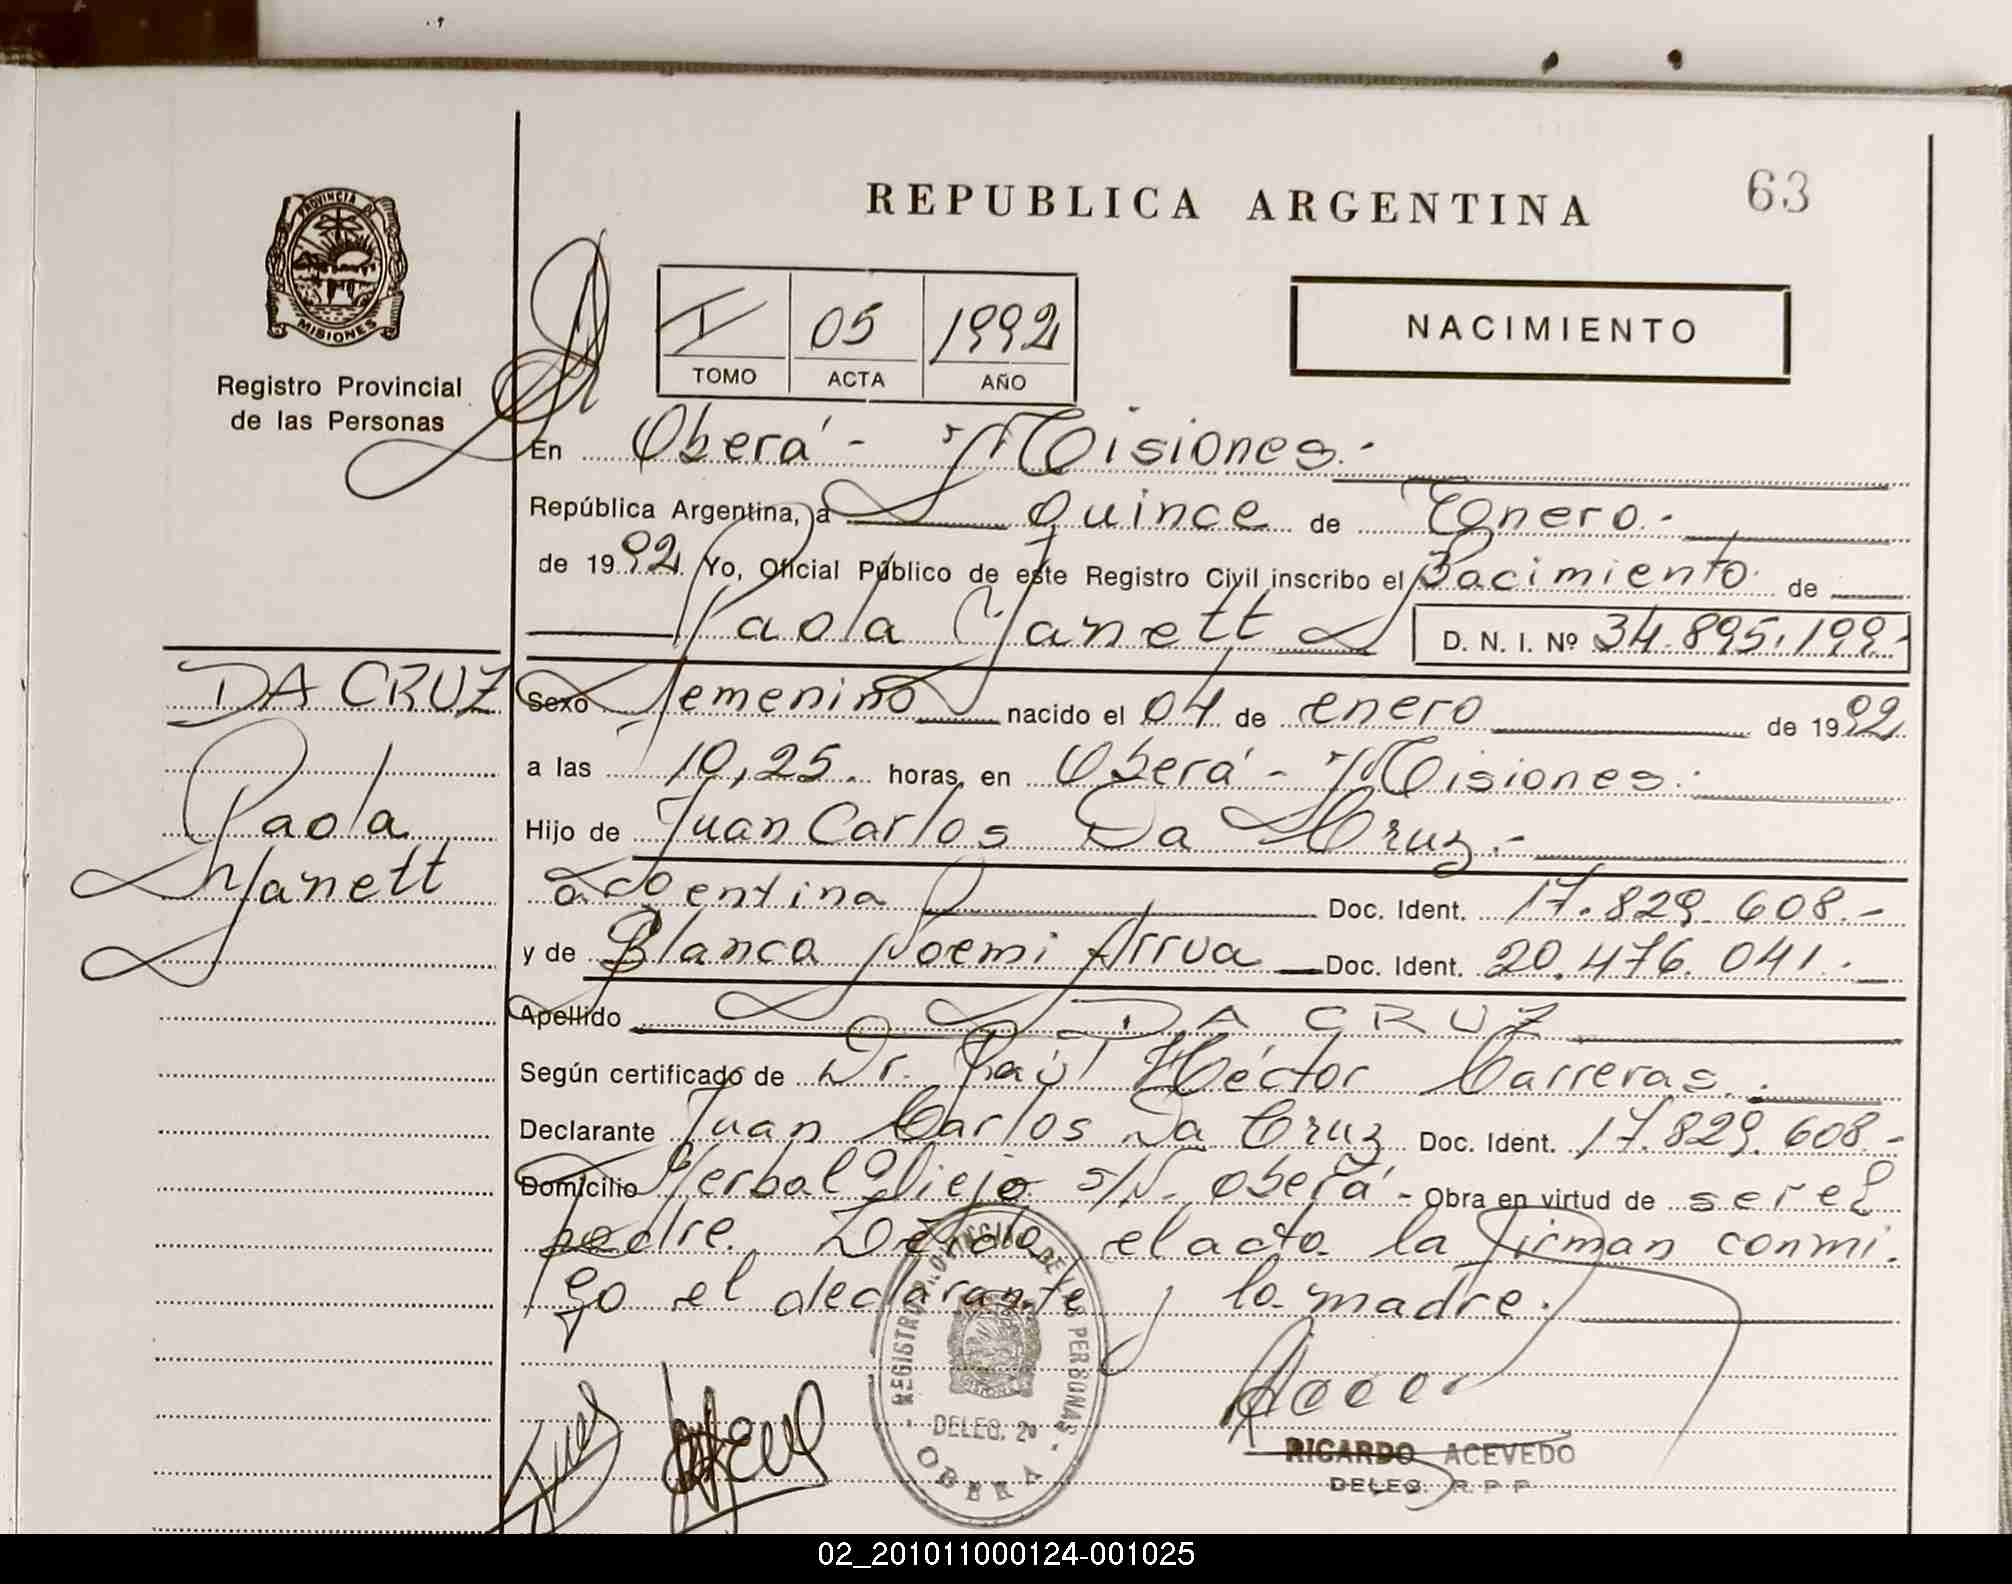 REPUBLICA ARGENTINA
63
PROVINCIA DE
MISIONES
Registro Provincial
de las Personas
I 05 1992
TOMO ACTA AÑO
NACIMIENTO
En Oberá - Misiones.-
República Argentina, a quince de Enero.-
de 1992. Yo, Oficial Público de este Registro Civil inscribo el Nacimiento de
Paola Yanett D. N. I. Nº 34.895.199.-
DA CRUZ
Paola
Yanett
Sexo Femenino nacido el 04 de enero de 1992
a las 10,25. horas, en Oberá - Misiones.-
Hijo de Juan Carlos Da Cruz.-
argentina Doc. Ident. 17.829.608.-
y de Blanca Noemi Arrua Doc. Ident. 20.476.041.-
Apellido DA CRUZ
Según certificado de Dr. Raúl Héctor Carreras.
Declarante Juan Carlos Da Cruz Doc. Ident. 17.829.608.-
Domicilio Yerbal Viejo s/N- oberá - Obra en virtud de ser el
padre. Leída el acta la firman conmi-
go el declarante y la madre.
REGISTRO PROVINCIAL DE LAS PERSONAS
DELEG. 2º
OBERA
RICARDO ACEVEDO
DELEG. R. P. P.
02_201011000124-001025